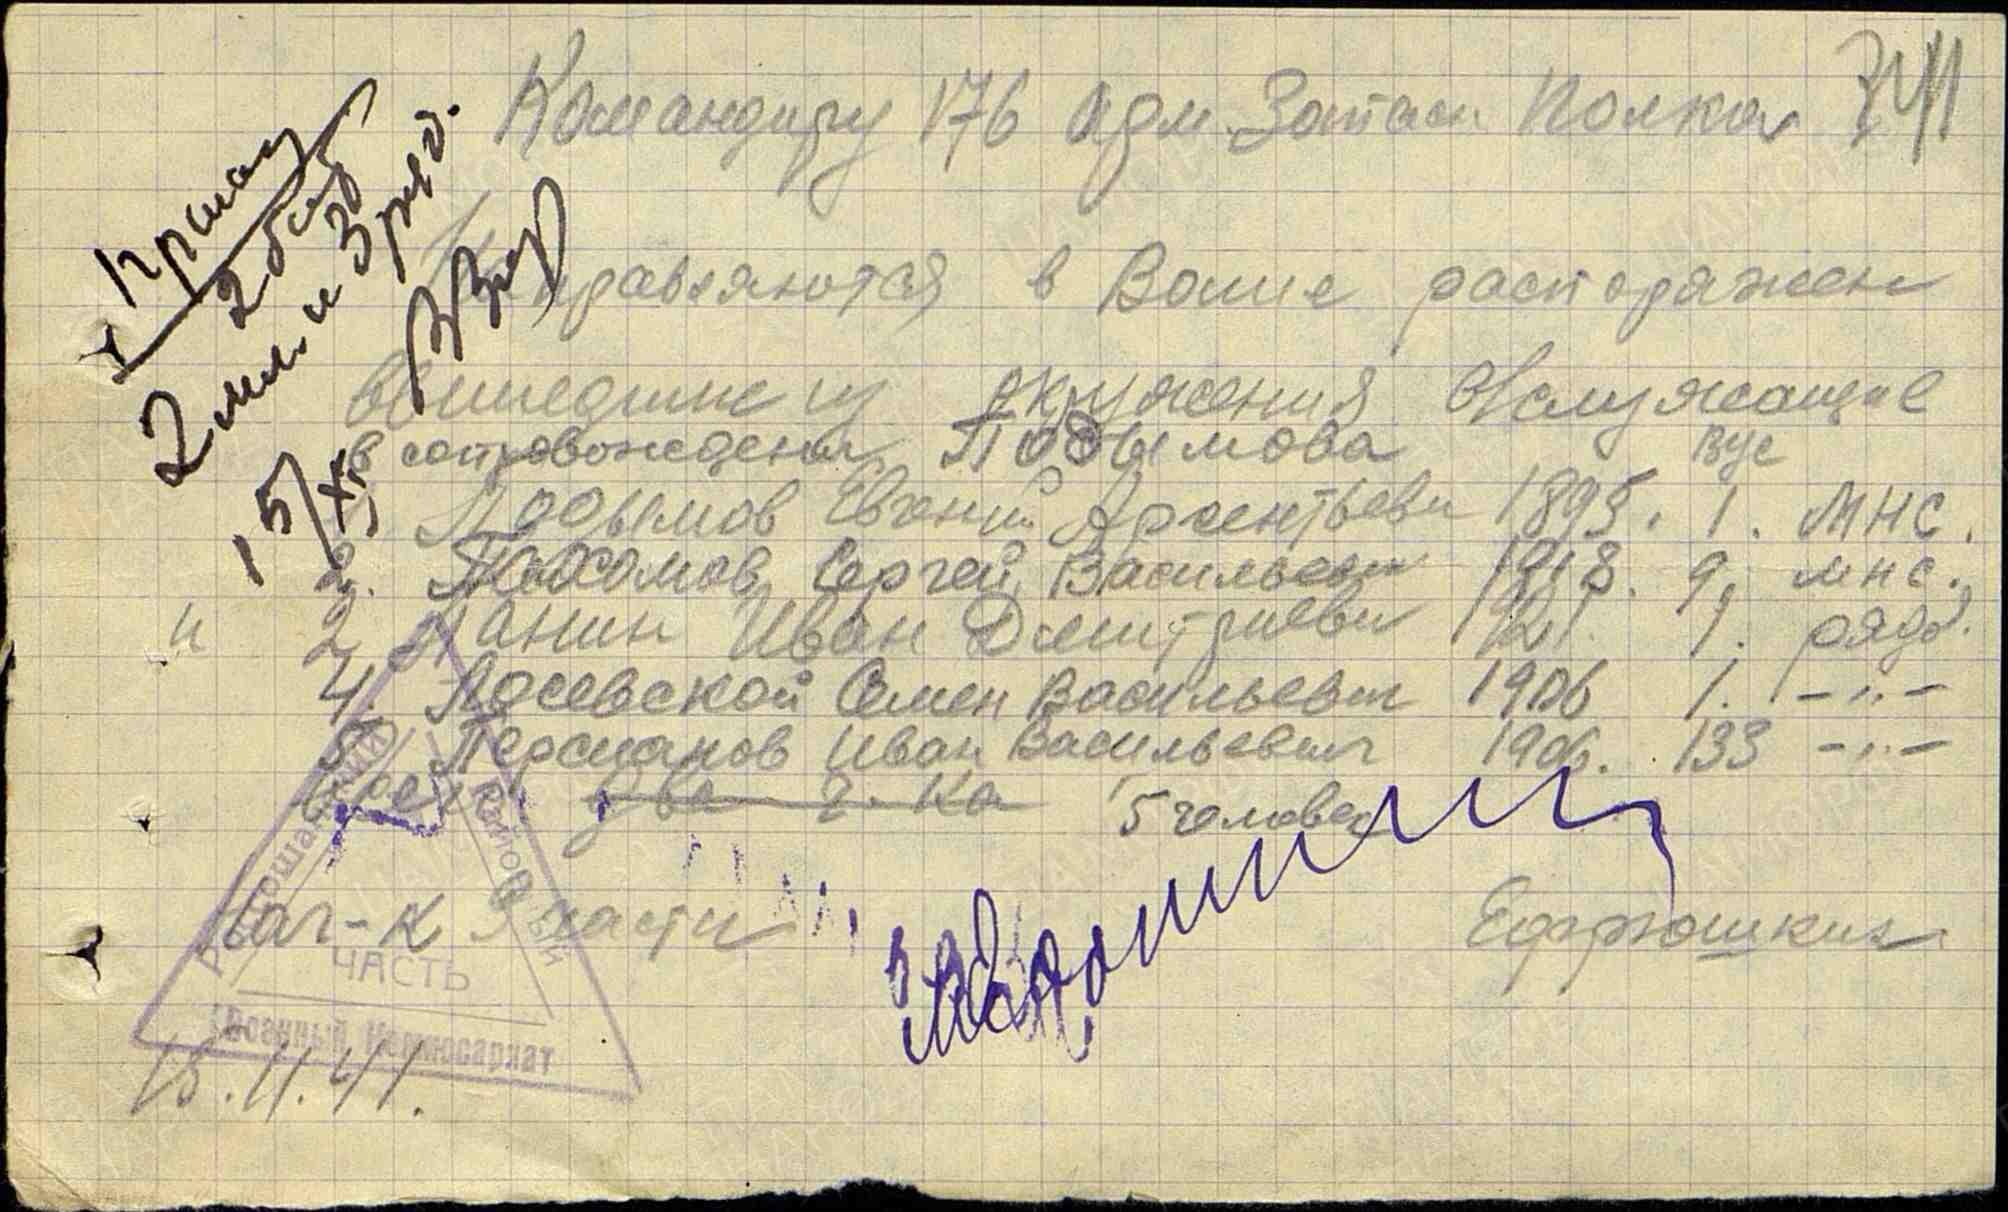 Командиру 176 Арм. Запасн Полка
Направляются в Ваше распоряжен
вышедшие из окружения в/служащие
в сопровождении Подымова вус
Подымов Евгений Арсентьеви 1895. 1. мнс.
2. Пахомов Сергей Васильеви 1918. 9. мнс.
и Ланин Иван Дмитриеви 1. рядо.
4. Лосевской Семен Васильевич 1906 1. -"-
5. Перманов Иван Васильевич 1906. 133 -"-
Всего два ч-ка 5 человек
Нач-к 2 части Ефрюшкин
15.11.41.
2 бат
2 мл. и 3 ряд.
15/XI
ЧАСТЬ
Военный Комиссариат